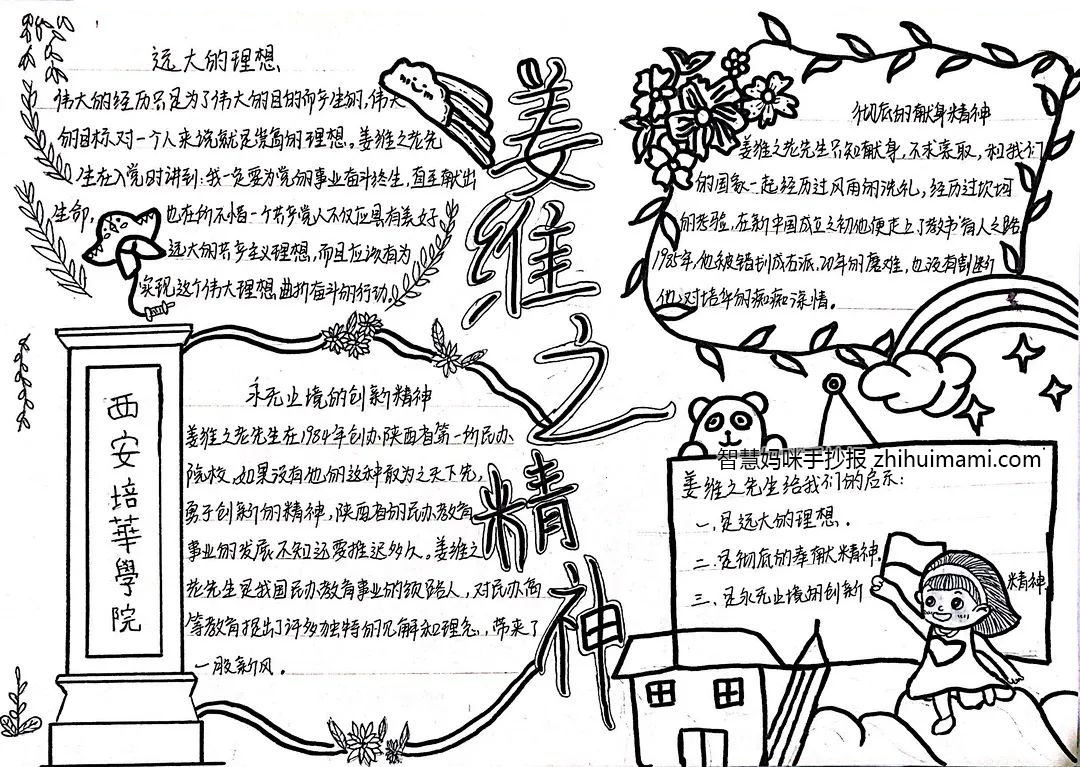 姜维之精神
远大的理想
伟大的经历只是为了伟大的目的而产生的,伟大
的目标对一个人来说就是崇高的理想。姜维之老先
生在入党时讲到:我一定要为党的事业奋斗终生,直至献出
生命,也在所不惜一个共产党人不仅应具有美好、
远大的共产主义理想,而且应该有为
实现这个伟大理想曲折奋斗的行动。
西安培華學院
永无止境的创新精神
姜维之老先生在1984年创办陕西省第一所民办
院校,如果没有他的这种敢为之天下先,
勇于创新的精神,陕西省的民办教育
事业的发展不知还要推迟多久。姜维之
老先生是我国民办教育事业的领路人,对民办高
等教育提出了许多独特的见解和理念,带来了
一股新风。
彻底的献身精神
姜维之老先生只知献身,不求索取,和我们
的国家一起经历过风雨的洗礼,经历过坎坷
的考验,在新中国成立之初他便走上了教书育人之路
1985年,他被错划成右派,20年的磨难,也没有割断
他对培华的痴痴深情。
智慧妈咪手抄报 zhihuimami.com
姜维之先生给我们的启示:
一、是远大的理想.
二、是彻底的奉献精神.
三、是永无止境的创新精神.